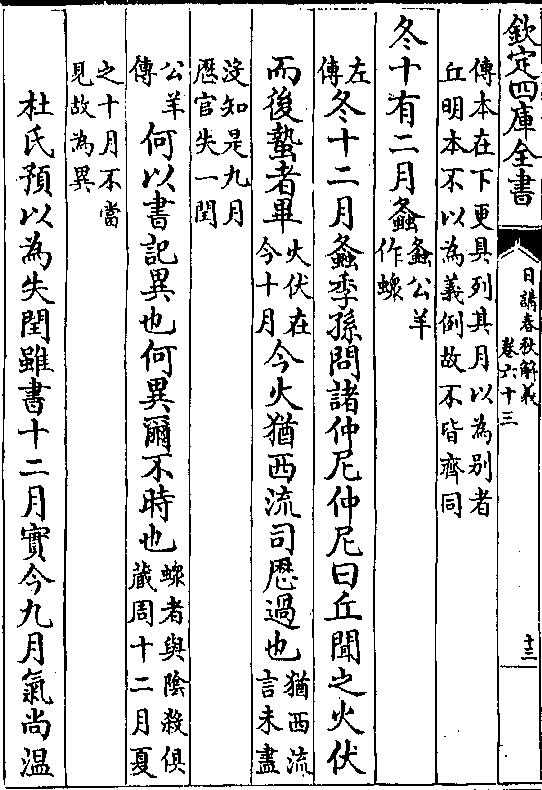 欽定四庫全書
日講春秋解義
卷六十三
十三
傳本在下更具列其月以為别者
丘明本不以為義例故不皆齊同
冬十有二月螽
螽公羊
作𧑄
左
傳
冬十二月螽季孫問諸仲尼仲尼曰丘聞之火伏
而後蟄者畢
火伏在
今十月
今火猶西流司厯過也
猶西流
言未盡
沒知是九月
厯官失一閏
公羊
傳
何以書記異也何異爾不時也
𧑄者與陰殺俱
藏周十二月夏
之十月不當
見故為異
杜氏預以為失閏雖書十二月實今九月氣尚溫